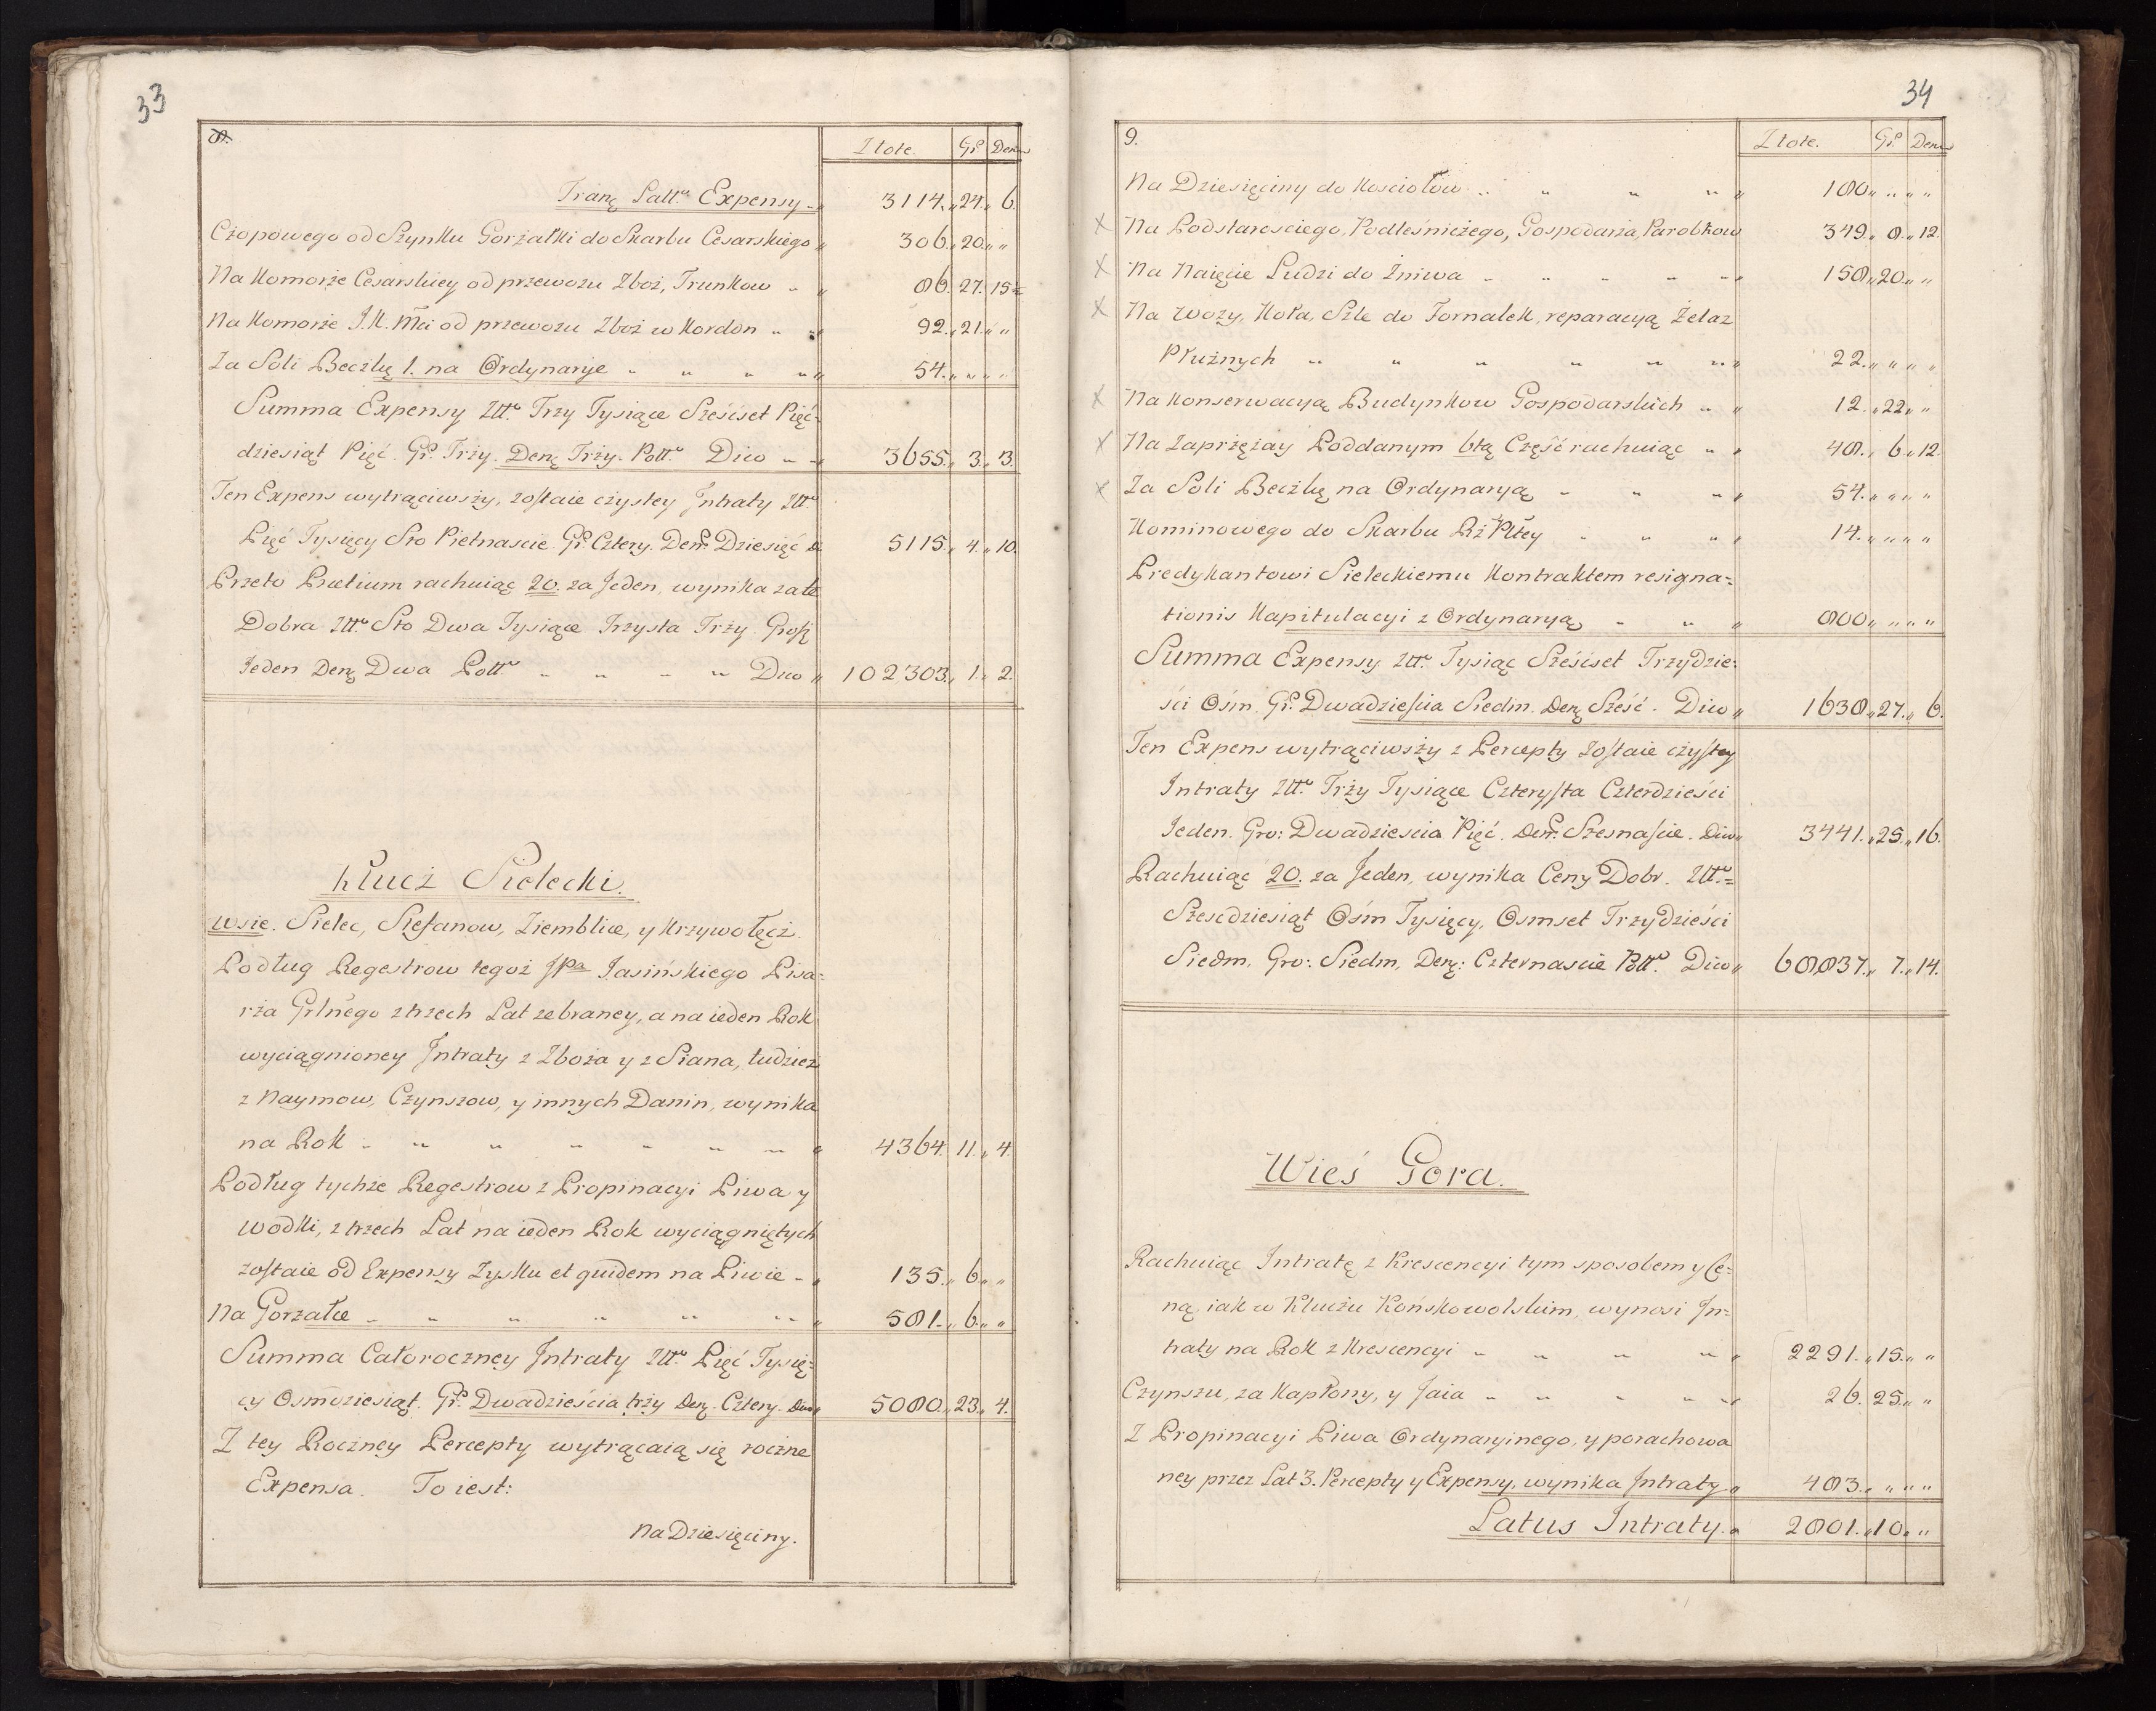 33
8.
Złote. Gr. Den.
Tranę Latt. Expensy 3114. 24. 6.
Czopowego od Szynku Gorzałki do Skarbu Cesarskiego 306. 20. „
Na Komorze Cesarskiey od przewozu Zboż, Trunkow „ 86. 27. 15
Na Komorze J.K.Mci od przewozu Zboż w Kordon „ 92. 21. „
Za Soli Beczkę 1. na Ordynarye „ „ „ „ 54. „ „
Summa Expensy Złł. Trzy Tysiące Sześćset Pięć=
dziesiąt Pięć. Gr. Trzy. Denę Trzy. Poll. Dico 3655. 3. 3.
Ten Expens wytrąciwszy, zostaie czystey Intraty Złł.
Pięć Tysięcy Sto Pietnascie. Gr. Cztery. Den. Dziesięć D. 5115. 4. 10.
Przeto Pretium rachuiąc 20. za Jeden, wynika za te
Dobra Złł. Sto Dwa Tysiące Trzysta Trzy. Groszę
Jeden Denę Dwa Poll. „ „ „ „ Dico 102303. 1. 2.
Klucz Sielecki.
Wsie. Sielec, Stefanow, Ziemblice, y Krzywołęcz.
Podług Regestrow tegoż JPa Jasińskiego Pisa=
rza Grlnego z trzech Lat zebraney, a na ieden Rok
wyciągnioney Intraty z Zboża y z Siana, tudziesz
z Naymow, Czynszow, y innych Danin, wynika
na Rok „ „ „ „ „ „ 4364. 11. 4.
Podług tychże Regestrow z Propinacyi Piwa y
Wodki, z trzech Lat na ieden Rok wyciągniętych
zostaie od Expensy Zysku et quidem na Piwie „ 135. 6. „
Na Gorzałce „ „ „ „ „ „ 581. 6. „
Summa Całoroczney Intraty Złł. Pięć Tysię=
cy Osmdziesiąt. Gr. Dwadzieścia trzy Denę. Cztery. Dico 5080. 23. 4.
Z tey Roczney Percepty wytrącaią się roczne
Expensa. To iest:
Na Dziesięciny.
34
9.
Złote. Gr. Den.
Na Dziesięciny do Kosciołow „ „ „ „ 180. „ „
X Na Podstarosciego, Podleśniczego, Gospodarza, Parobkow 349. 8. 12.
X Na Naięcie Ludzi do Żniwa „ „ „ „ 158. 20. „
X Na Wozy, Koła, Szle do Fornalek, reparacyą Żelaz
Płużnych „ „ „ „ „ „ 22. „ „
X Na Konserwacyą Budynkow Gospodarskich „ „ 12. 22. „
X Na Zaprzężay Poddanym 6tą Część rachuiąc „ „ 48. 6. 12.
X Za Soli Beczkę na Ordynaryą „ „ „ 54. „ „
Kominowego do Skarbu Rz Pltey „ „ „ 14. „ „
Predykantowi Sieleckiemu Kontraktem resigna=
tionis Kapitulacyi z Ordynaryą „ „ „ 800. „ „
Summa Expensy Złł. Tysiąc Sześćset Trzydzie=
ści Ośm. Gr. Dwadziescia Siedm. Denę Sześć. Dico 1638. 27. 6.
Ten Expens wytrąciwszy z Percepty zostaie czystey
Intraty Złł. Trzy Tysiące Czterysta Czterdzieści
Jeden. Gro: Dwadziescia Pięć. Den. Szesnascie. Dico 3441. 25. 16.
Rachuiąc 20. za Jeden, wynika Ceny Dobr. Złł.=
Szescdziesiąt Ośm Tysięcy, Osmset Trzydzieści
Siedm, Gro: Siedm, Denę: Czternascie Poll. Dico 68837. 7. 14.
Wieś Gora.
Rachuiąc Intratę z Krescencyi tym sposobem y Ce=
ną, iak w Kluczu Końskowolskim, wynosi In=
traty na Rok z Krescencyi „ „ „ „ 2291. 15. „
Czynszu, za Kapłony, y Jaia „ „ „ „ 26. 25. „
Z Propinacyi Piwa Ordynaryinego, y porachowa
ney przez Lat 3. Percepty y Expensy, wynika Intraty 483. „ „
Latus Intraty. 2801. 10. „